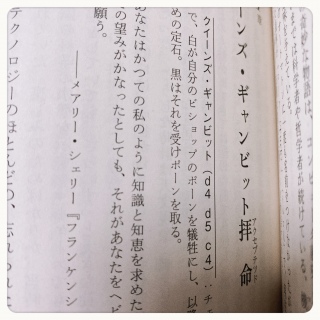 科学者や哲学者が続けている、
ンズ・ギャンビット拝命
アクセプテッド
クイーンズ・ギャンビット（d4 d5 c4）：チ
で、白が自分のビショップのポーンを犠牲にし、以
めの定石。黒はそれを受けポーンを取る。
あなたはかつての私のように知識と知恵を求めた
の望みがかなったとしても、それがあなたをヘビ
願う。
――メアリー・シェリー『フランケンシ
テクノロジーのほとんどの、忘れられた